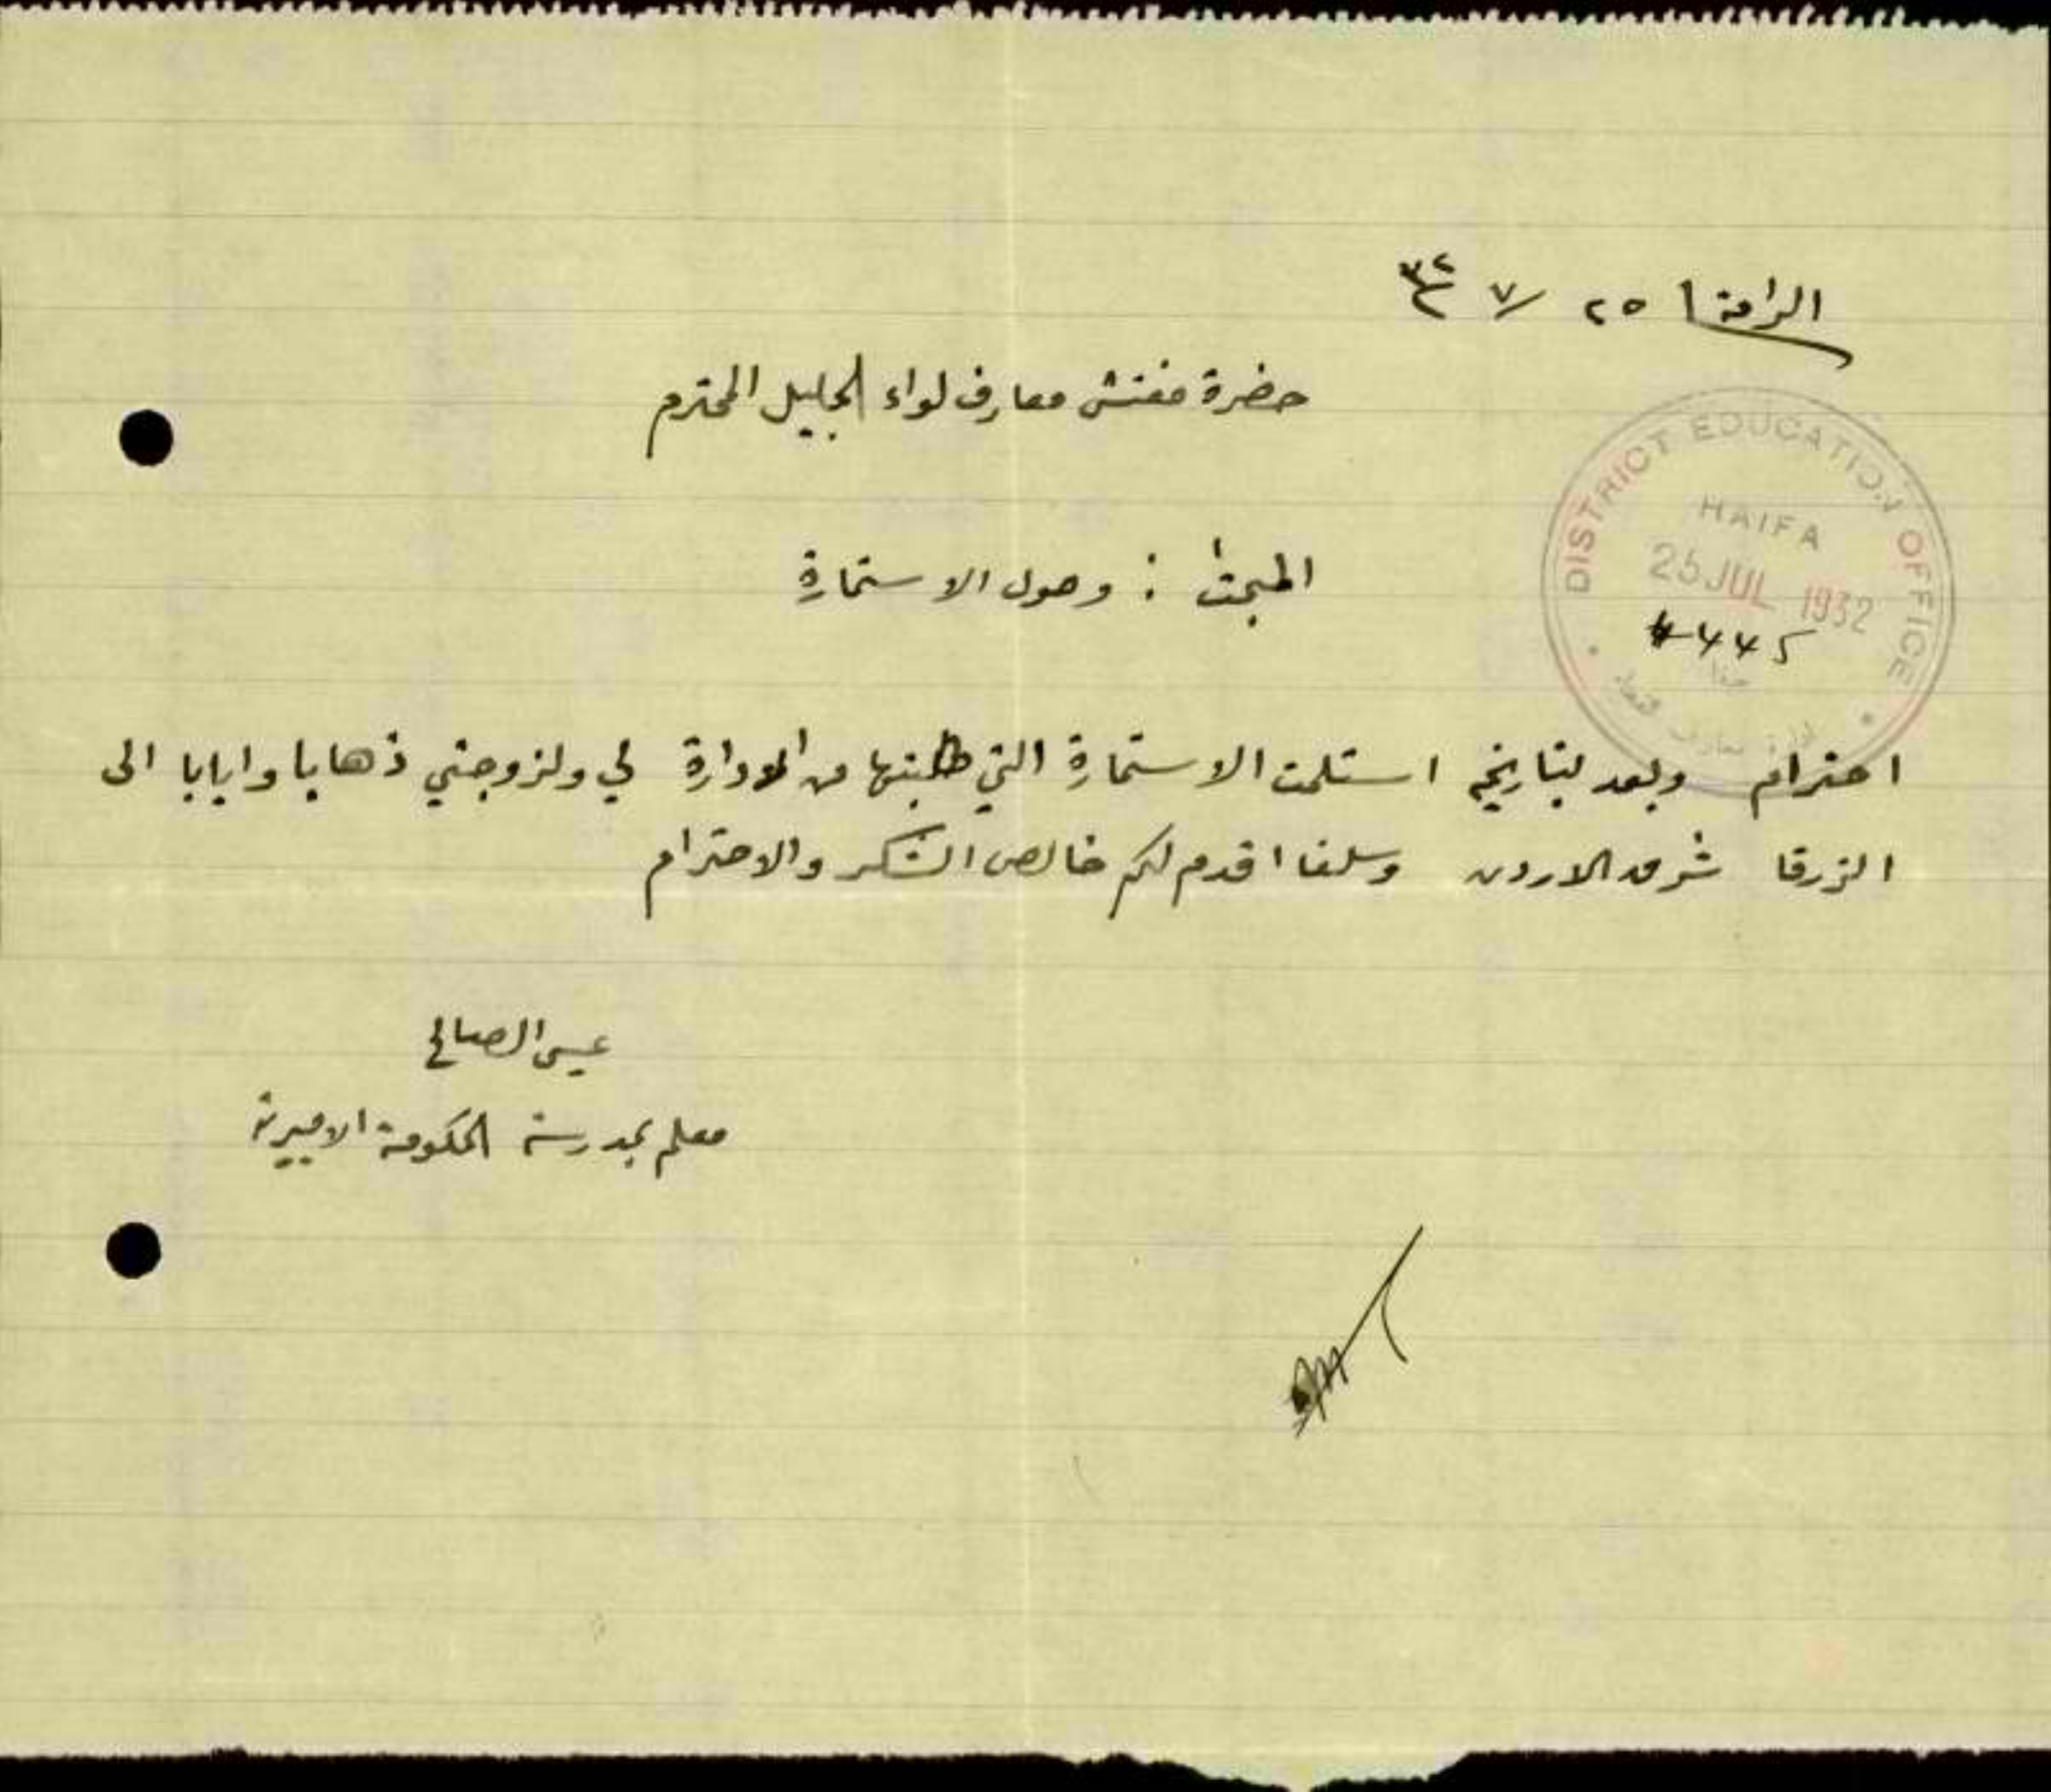 الرامة ٢٥ /٧ ٣٢
حضرة مفتش معارف لواء الجليل المحترم
DISTRICT EDUCATION OFFICE
HAIFA
25 JUL 1932
المبحث : وصول الاستمارة
احترام وبعد بتاريخه استلمت الاستمارة التي طلبتها من الادارة لي ولزوجتي ذهابا وايابا الى
الزرقا شرق الاردن وسلفا اقدم لكم خالص الشكر والاحترام
عيسى الصالح
معلم بمدرسة الحكومة الاميرية